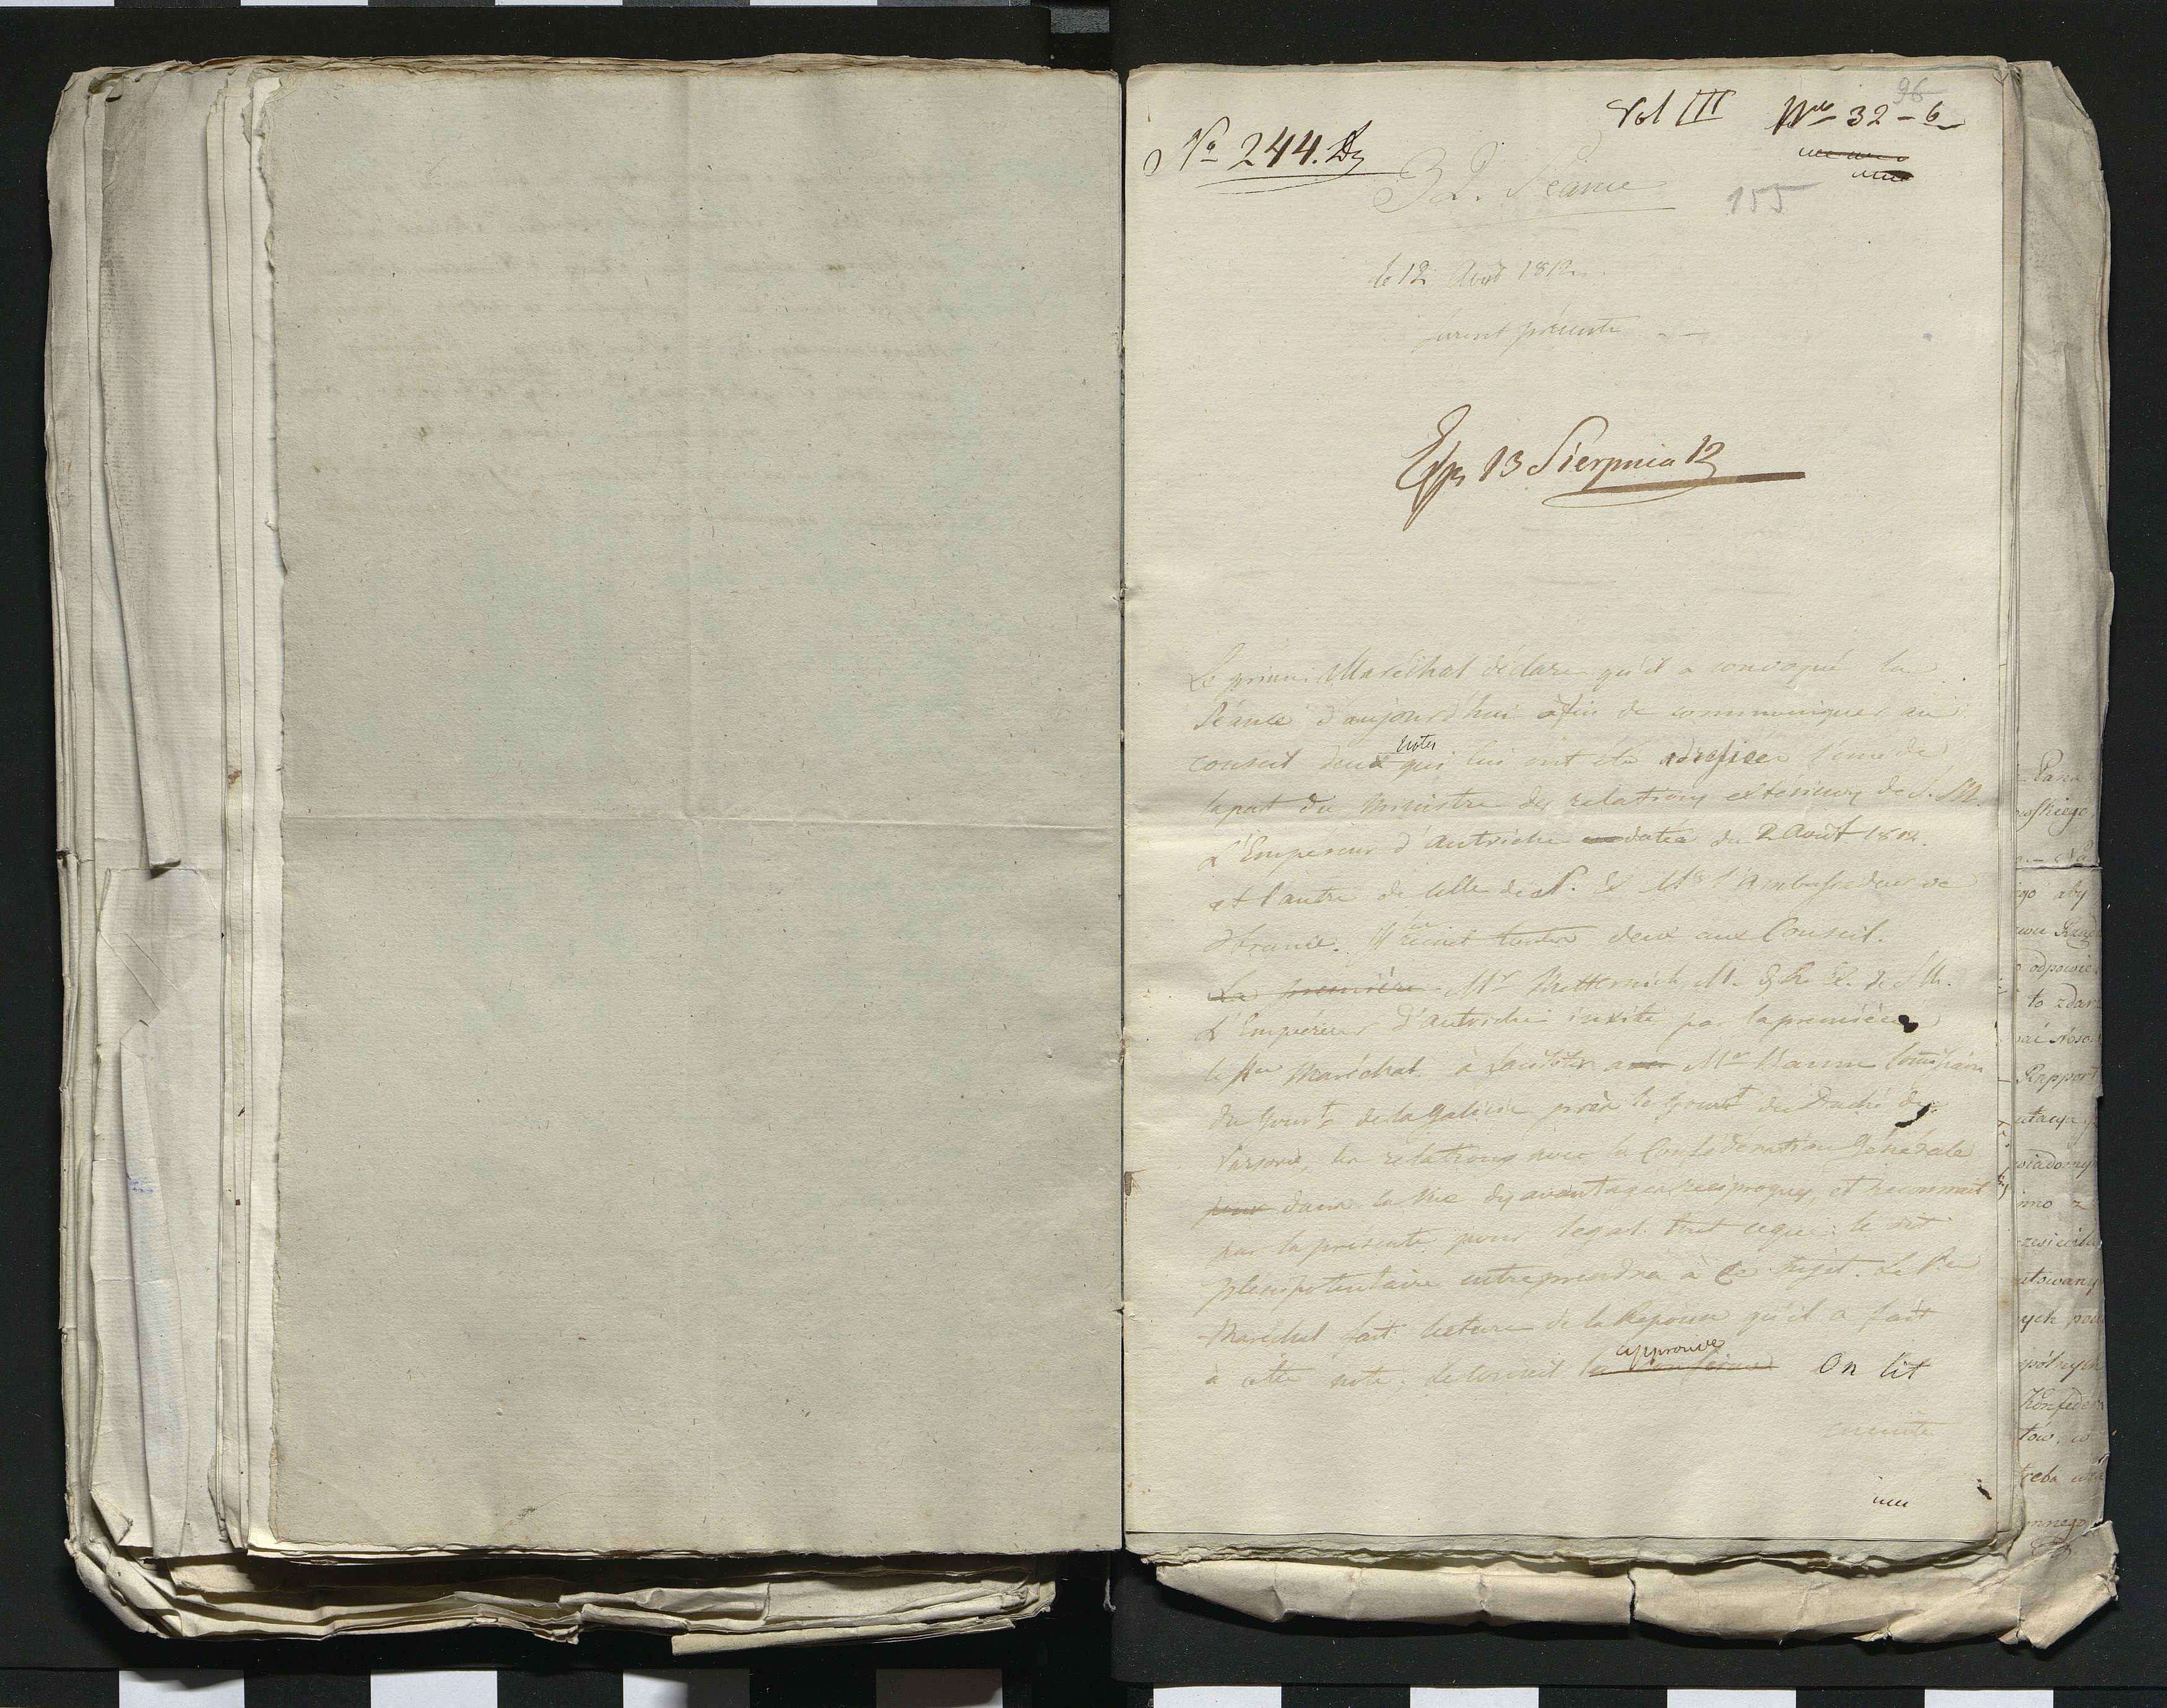 Vol III Nro 32-6
96
No 244. Dz
32. Séance
155
le 12 Août 1812
furent présents
Exp. 13 Sierpnia 12
Le prince Maréchal déclare qu'il a convoqué la
Séance d'aujourd'hui afin de communiquer au
conseil deux notes qui lui ont été adressées l'une de
la part du Ministre des relations extérieures de S. M.
L'Empereur d'Autriche datée du 2 Août 1812.
et l'autre de celle de S. E. Mr l'Ambassadeur de
France. Il toutes deux aux Conseil.
La première Mr Metternich M. de S. M.
L'Empéreur d'Autriche invite par la première
le Pce Maréchal à avec Mr Baum Commissaire
du Gouvt de la Galicie près le Gouvt du Duché de
Varsovie, les relations avec la Confédération Générale
pour dans la vue des avantages reciproques, et reconnait
par la présente pour legal tout ce que le dit
plenipotentiaire entreprendra à ce sujet. Le Pce
Maréchal fait lecture de la Reponse qu'il a fait
à cette note; le conseil la approuve On lit
ensuite
Pana
owskiego
igo aby
odpowie
to zdar
Rapport
wiadomy
imo z
ych po
Konfede
tow. w
mnego